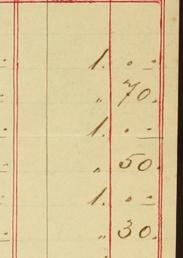 1. . -
" 70.
1. . -
" 50.
1. . -
" 30.